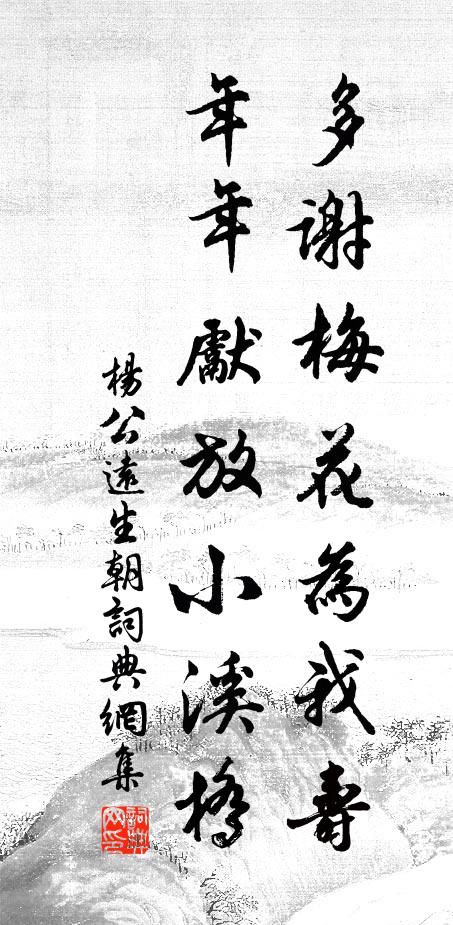 多謝梅花為我壽
年年獻放小溪橋
楊公遠生朝詞典網集